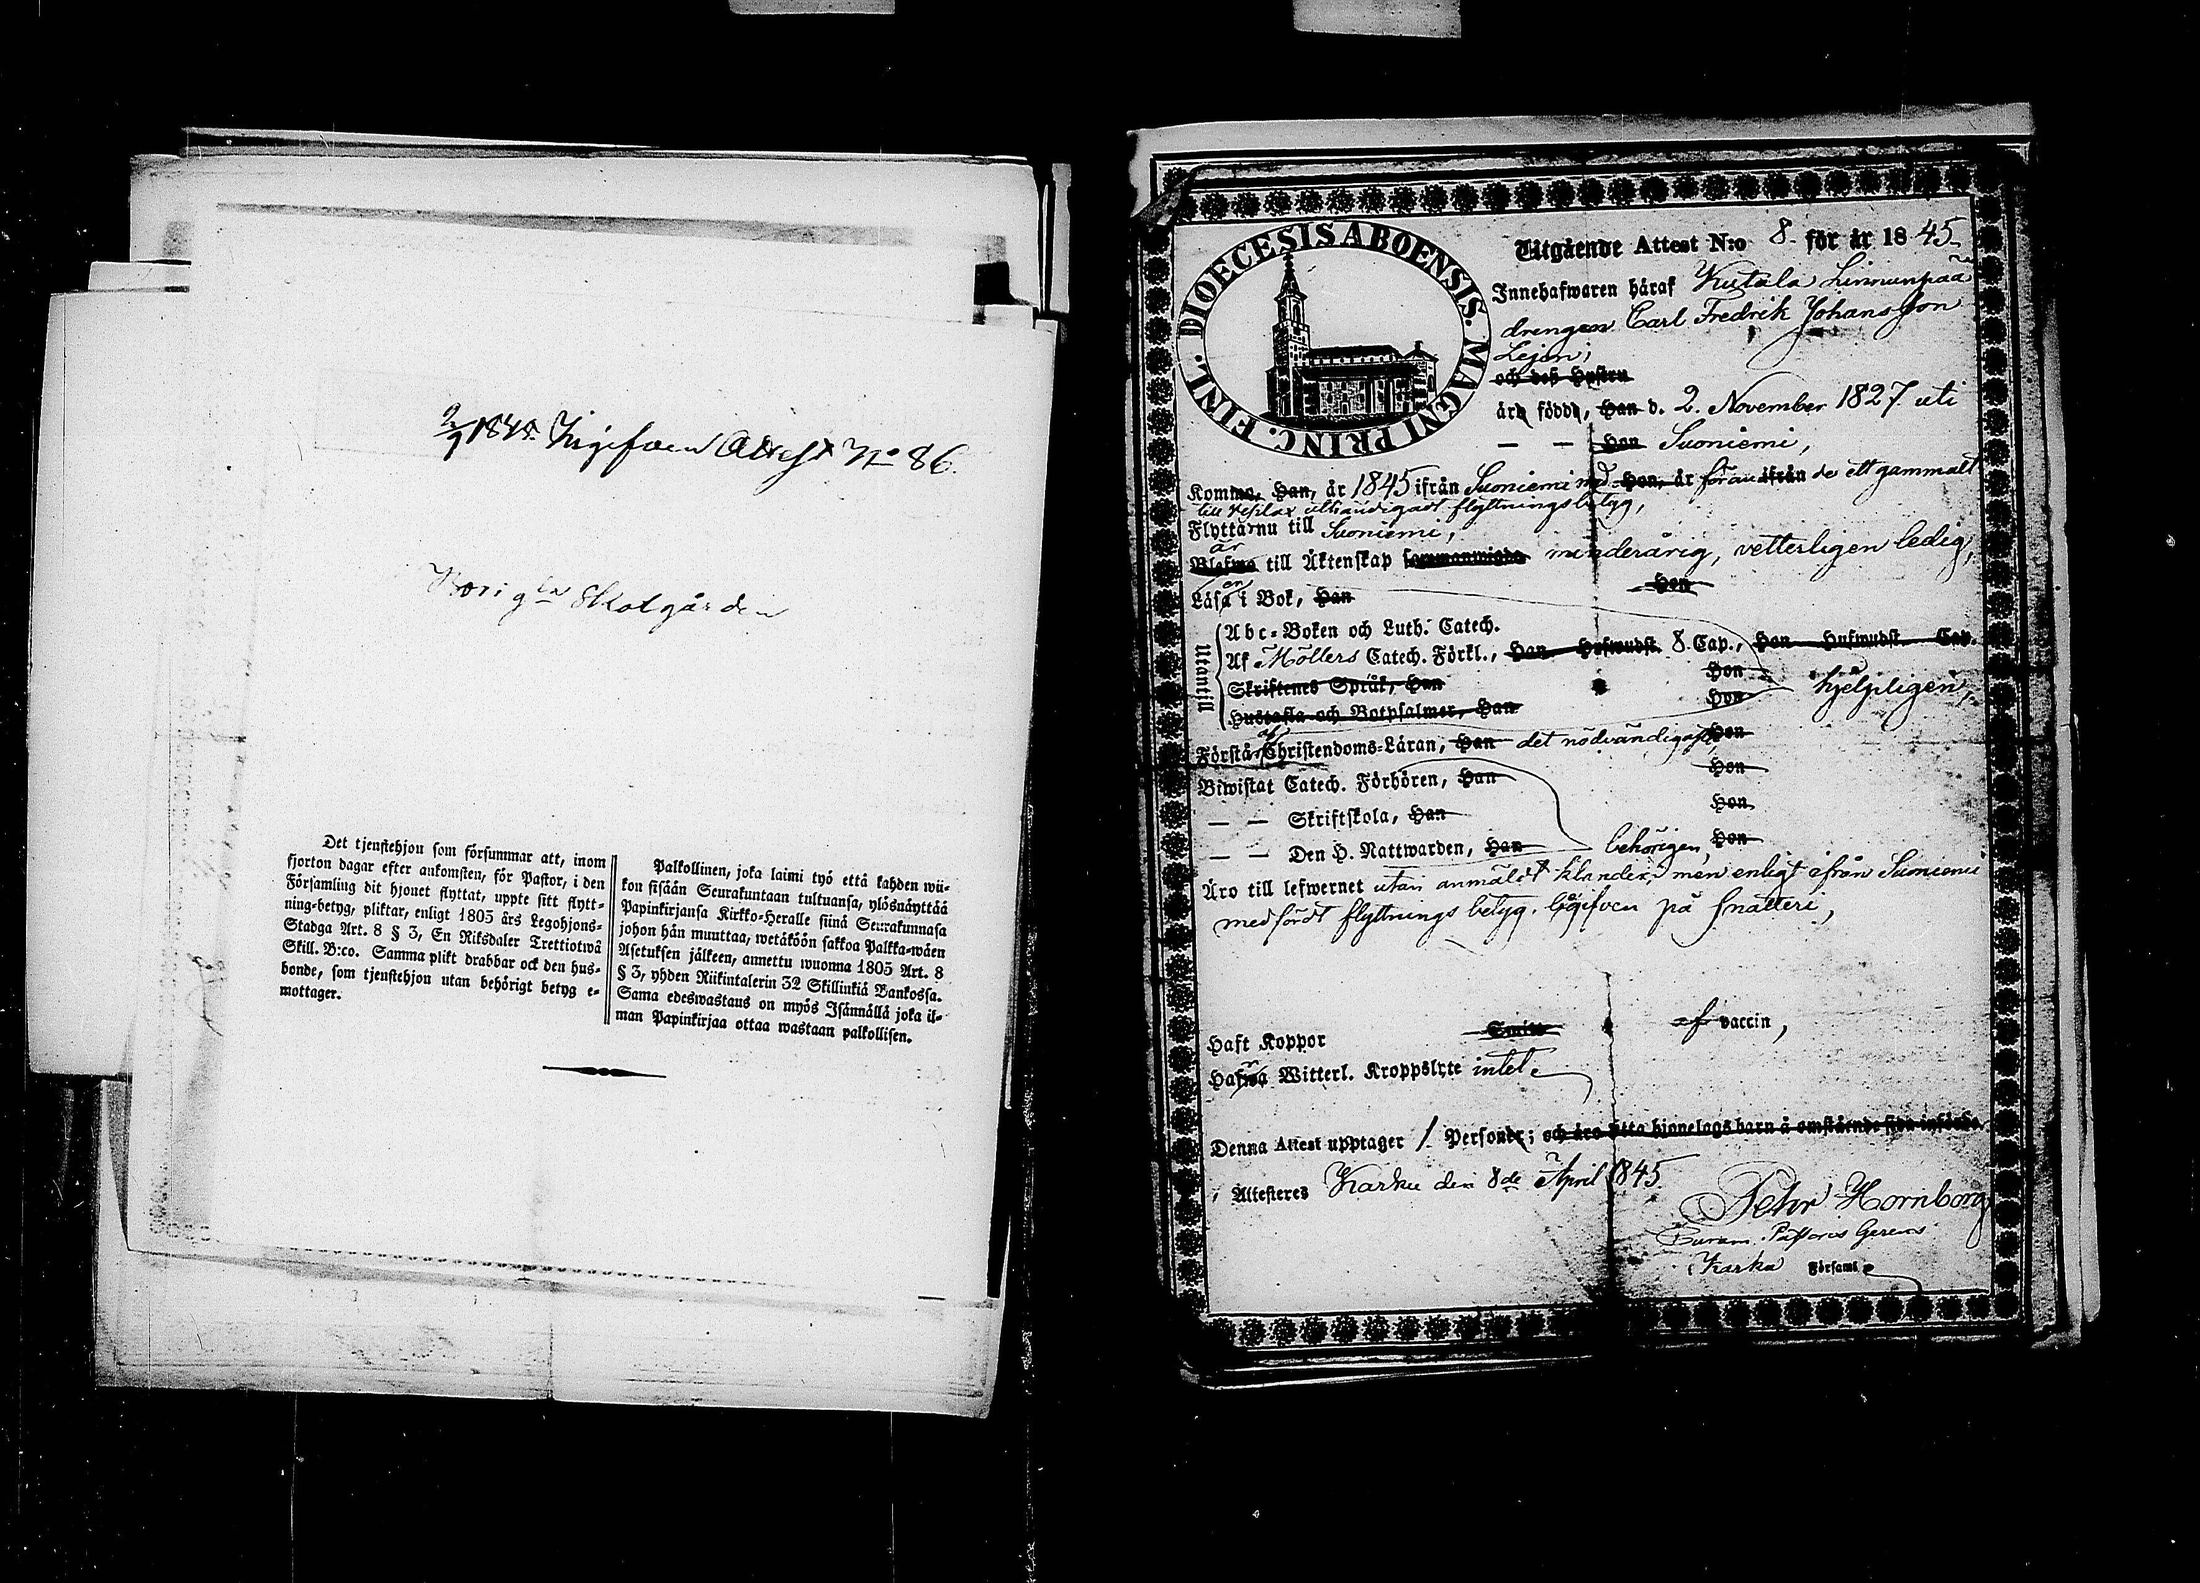 2/9 1845. Ingifven Attest No 86.
Skolgården
Det tjenstehjon som försummar att, inom
fjorton dagar efter ankomsten, för Pastor, i den
Församling dit hjonet flyttat, uppte sitt flytt-
ning-betyg, pliktar, enligt 1805 års Legohjons-
Stadga Art. 8 § 3, En Riksdaler Trettiotwå
Skill. B:co. Samma plikt drabbar ock den hus-
bonde, som tjenstehjon utan behörigt betyg e-
mottager.
Palkollinen, joka laimi lyö että kahden wii-
kon sisään Seurakuntaan tultuansa, ylösnäyttää
Papinkirjansa Kirkko-Heralle siinä Seurakunnasa
johon hän muuttaa, wetäköön sakkoa Palkka-wäen
Asetuksen jälkeen, annettu wuonna 1805 Art. 8
§ 3, yhden Riikintalerin 32 Skillinkiä Bankossa.
Sama edeswastaus on myös Isännällä joka il-
man Papinkirjaa ottaa wastaan palkollisen.
DIOECESIS ABOENSIS. MAGNI PRINC. FINL.
Utgående Attest N:o 8 för år 1845
Innehafwaren häraf Kutala Linnunpää
drengen Carl Fredrik Johansson
Lejon;
och deß Hustru
äro födde, Han d. 2. November 1827 uti
— — Hon Suoniemi,
Komne, Han, år 1845 ifrån Suoniemi med Hon, år ifrån ett gammalt
till flyttningsbetyg,
Flytta nu till Suoniemi,
är
Blefwo till Äktenskap sammanwigde minderårig, vetterligen ledig,
en
Läsa i Bok, Han Hon
Utantill
Abc-Boken och Luth. Catech.
Af Möllers Catech. Förkl., Han Hufwudst. 8 Cap., Hon Hufwudst. Cap.
Skriftenes Språk, Han Hon
hjelpligen,
Hustafla och Botpsalmer, Han Hon
af
Förstå Christendoms-Läran, Han det nödvändigaste, Hon
Biwistat Catech. Förhören, Han Hon
— — Skriftskola, Han Hon
— — Den H. Nattwarden, Han behörigen, Hon
Äro till lefwernet utan anmäldt klander, men enligt ifrån Suoniemi
medfördt flyttnings betyg, begifven på snatteri,
Haft Koppor Smitt af vaccin,
Hafwa Witterl. Kroppslyte intet.
Denna Attest upptager 1 Personer; och äro ätta hjonelags barn å omstående sida införde.
Attesteres Karku den 8de April 1845.
Petr Hornborg
Curam Pastoris Gerens
i Karku Församl.